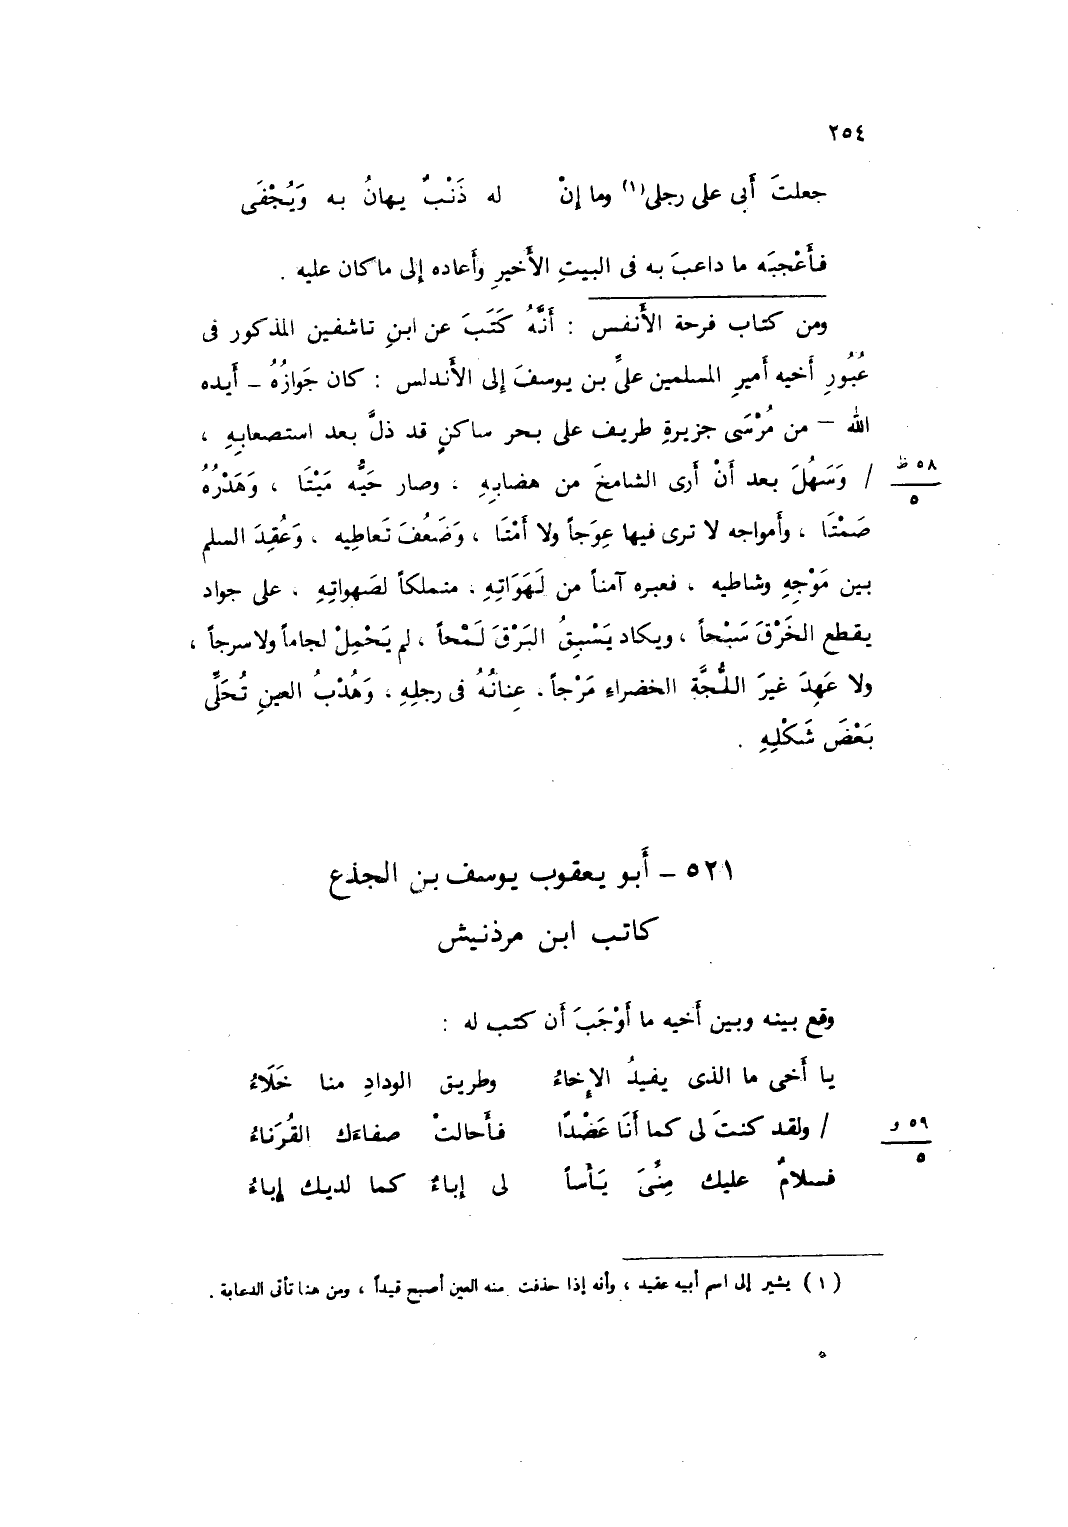 ٢٥٤
جعلتَ أَبى على رجلى(١) وما إنْ له ذَنْبٌ يهانُ به وَيُجْفَى
فأَعْجبَه ما داعبَ به فى البيتِ الأَخيرِ وأَعاده إلى ماكان عليه .
ومن كتاب فرحة الأَنفس : أَنَّهُ كَتَبَ عن ابنِ تاشفين المذكور فى
عُبُورِ أَخيه أَميرِ المسلمين علىِّ بن يوسفَ إلى الأَندلس : كان جَوازُهُ ـ أَيده
الله – من مُرْسَى جزيرةِ طريف على بحر ساكنٍ قد ذلَّ بعد استصعابِهِ ،
٥٨ ظ / وَسَهُلَ بعد أَنْ أَرى الشامخَ من هضابِهِ ، وصار حَيُّه مَيْتَا ، وَهَدْرُهُ
٥
صَمْتَا ، وأَمواجه لا ترى فيها عِوَجاً ولا أَمْتَا ، وَضَعُفَ تَعاطِيه ، وَعُقِدَ السلم
بين مَوْجِهِ وشاطيه ، فعبره آمناً من لَهَوَاتِهِ ، متملكاً لصَهواتِهِ ، على جواد
يقطع الخَرْقَ سَبْحاً ، ويكاد يَسْبِقُ البَرْقَ لَمْحاً ، لم يَحْمِلْ لجاماً ولاسرجاً ،
ولا عَهِدَ غيرَ اللُّجَّةِ الخضراءِ مَرْجاً ، عِنانُهُ فى رجلِهِ ، وَهُدْبُ العينِ تُحَلِّى
بَعْضَ شَكْلِهِ .
٥٢١ ـ أَبو يعقوب يوسف بن الجذع
كاتب ابن مرذنيش
وقع بينه وبين أَخيه ما أَوْجَبَ أَن كتب له :
يا أَخى ما الذى يفيدُ الإِخاءُ وطريق الودادِ منا خَلَاءُ
٥٩ و / ولقد كنتَ لى كما أَنَا عَضْدًا فأَحالتْ صفاءَك القُرَناءُ
٥
فسلامٌ عليك مِنِّىَ يَأْساً لى إباءٌ كما لديك إباءُ
(١) يشير إلى اسم أبيه عقيد ، وأنه إذا حذفت منه العين أصبح قيداً ، ومن هنا تأتى الدعابة .